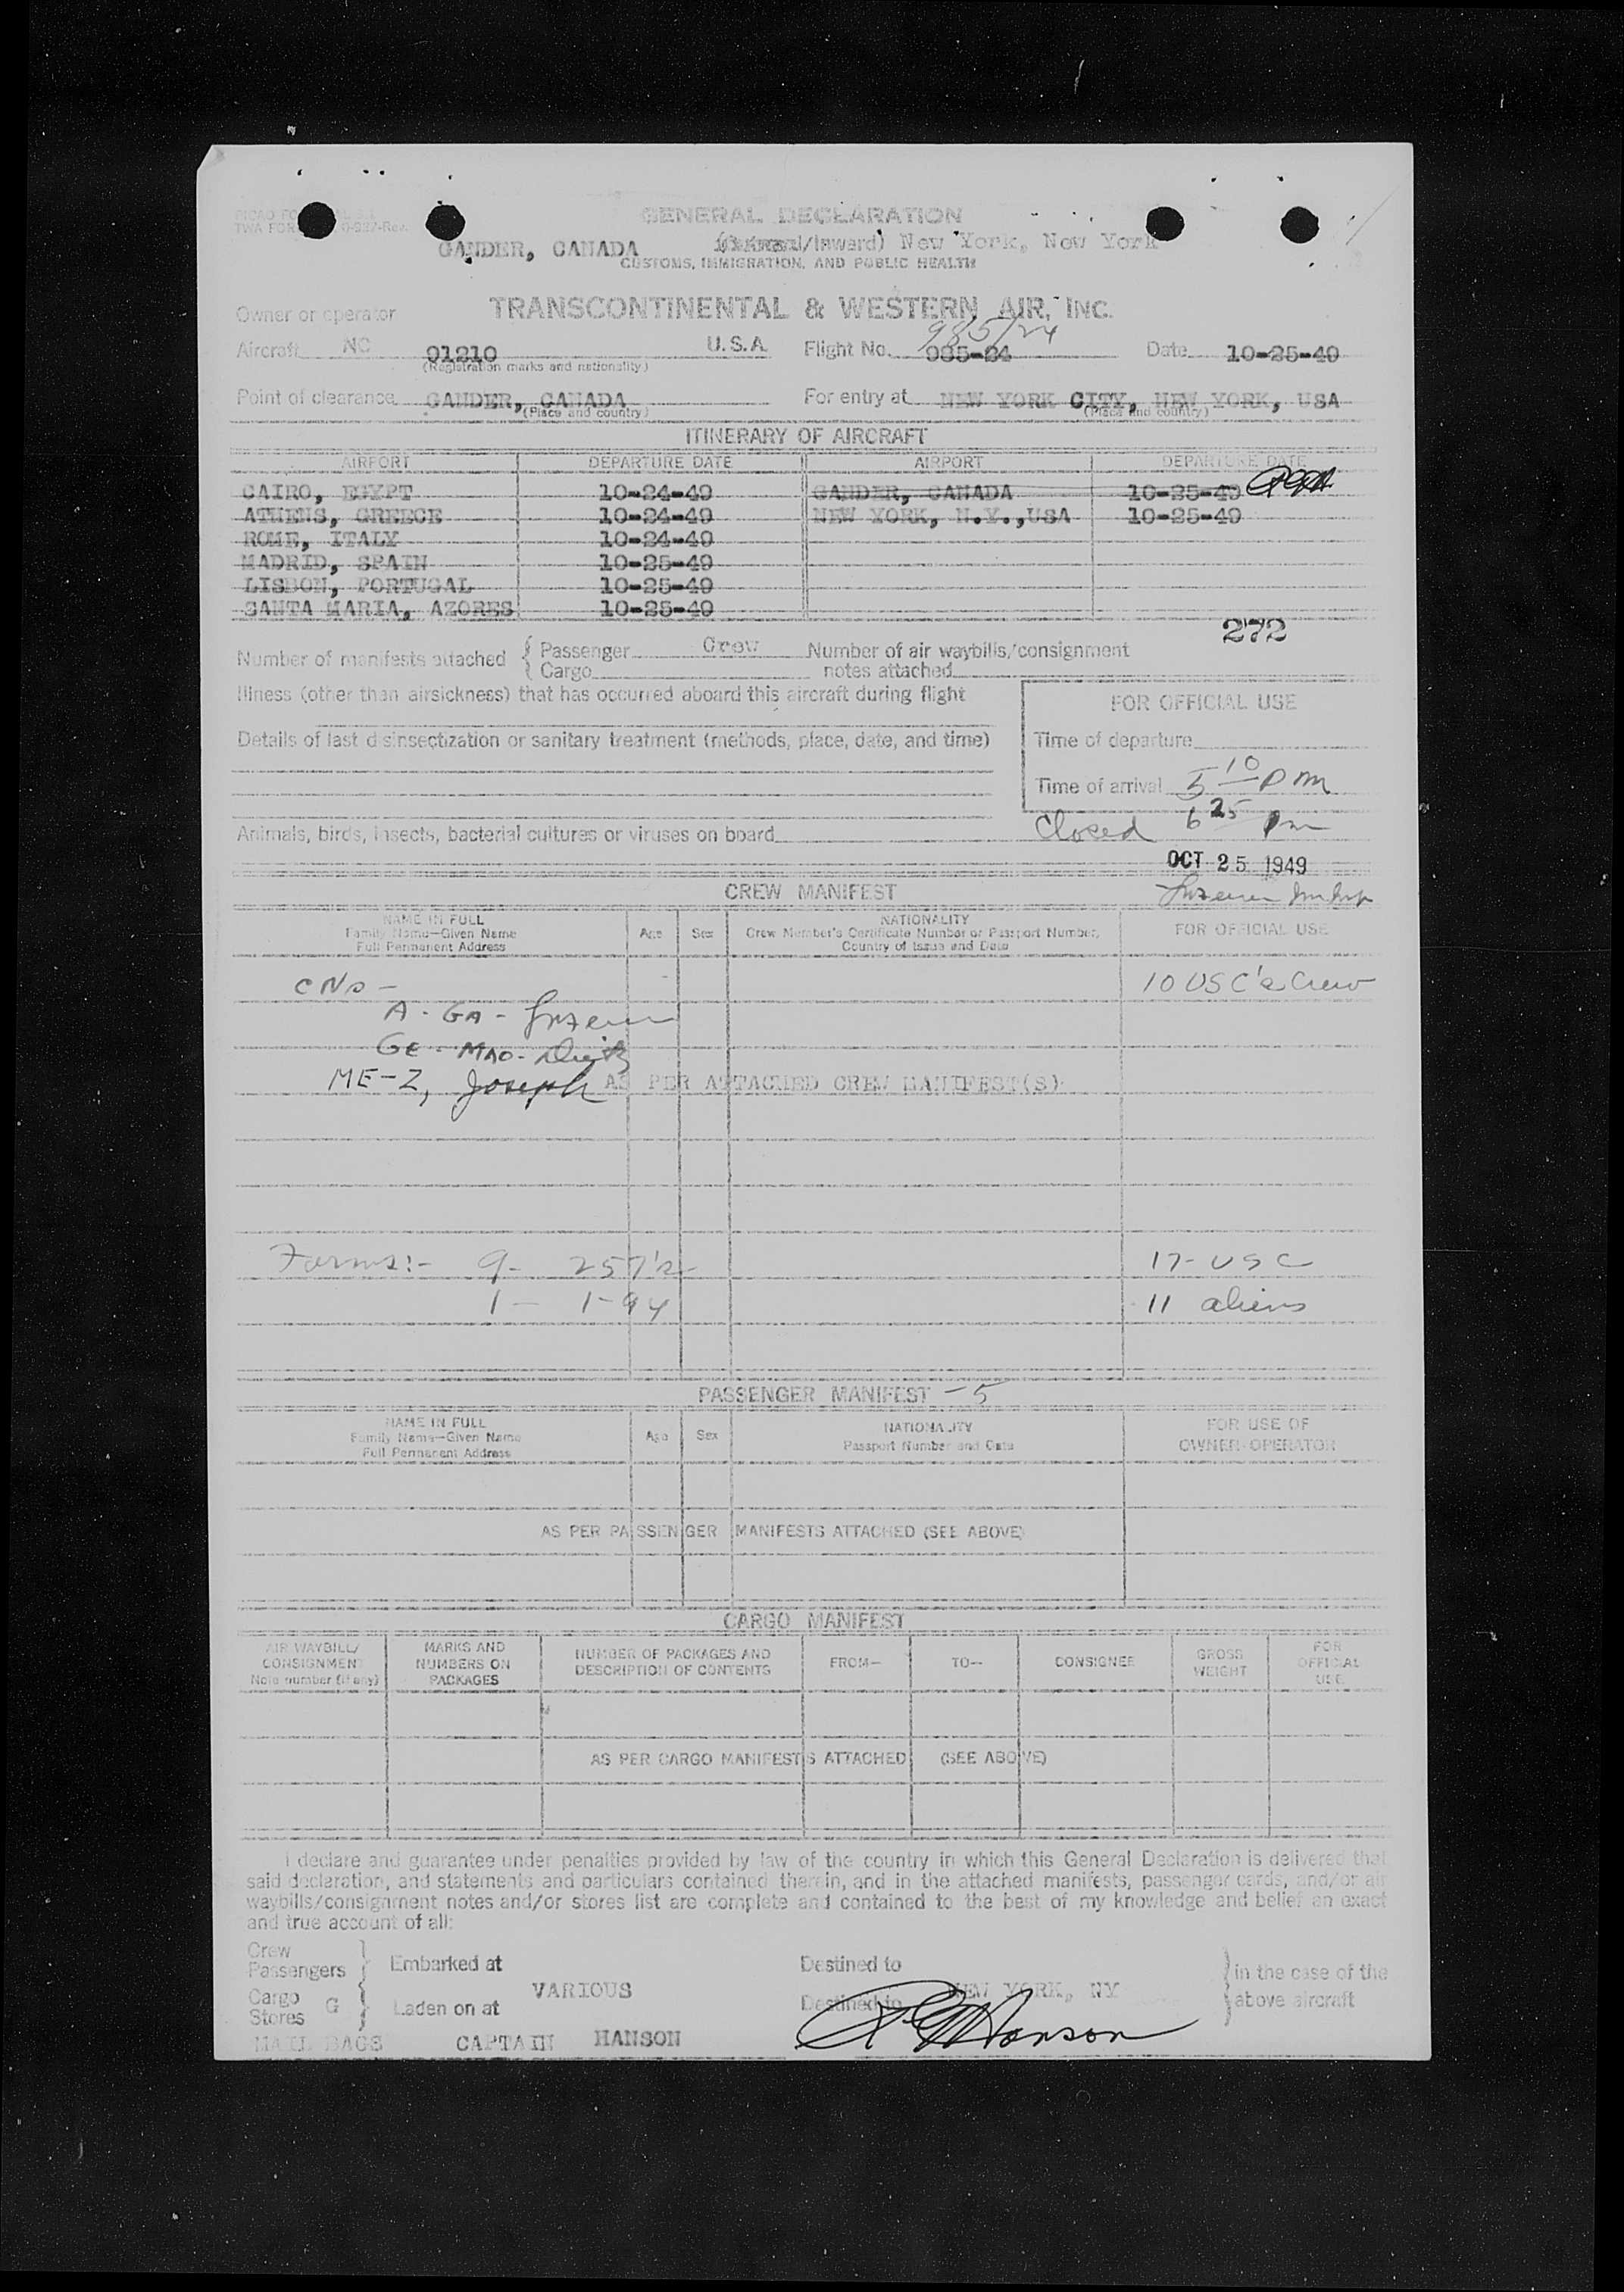 GENERAL DECLARATION
GANDER, CANADA (Outward/Inward) New York, New York
CUSTOMS, IMMIGRATION, AND PUBLIC HEALTH
Owner or operator TRANSCONTINENTAL & WESTERN AIR, INC.
985/24
Aircraft NC 91210 U.S.A. Flight No. 985-24 Date 10-25-49
(Registration marks and nationality)
Point of clearance GANDER, CANADA For entry at NEW YORK CITY, NEW YORK, USA
(Place and country) (Place and country)
ITINERARY OF AIRCRAFT
AIRPORT DEPARTURE DATE AIRPORT DEPARTURE DATE
CAIRO, EGYPT 10-24-49 GANDER, CANADA 10-25-49
ATHENS, GREECE 10-24-49 NEW YORK, N.Y.,USA 10-25-49
ROME, ITALY 10-24-49
MADRID, SPAIN 10-25-49
LISBON, PORTUGAL 10-25-49
SANTA MARIA, AZORES 10-25-49
272
Number of manifests attached { Passenger Crew Number of air waybills/consignment
Cargo notes attached
Illness (other than airsickness) that has occurred aboard this aircraft during flight
FOR OFFICIAL USE
Details of last disinsectization or sanitary treatment (methods, place, date, and time)
Time of departure
Time of arrival 5 10 pm
Closed 6 25 pm
Animals, birds, insects, bacterial cultures or viruses on board
OCT 25 1949
CREW MANIFEST
NAME IN FULL
Family Name—Given Name
Full Permanent Address
Age Sex
NATIONALITY
Crew Member's Certificate Number or Passport Number,
Country of Issue and Date
FOR OFFICIAL USE
10 USC's Crew
A - GA -
GE - MAO -
ME-Z, Joseph AS PER ATTACHED CREW MANIFEST(S)
Forms:- 9- 257's 17- USC
1 - 1-94 11 aliens
PASSENGER MANIFEST - 5
NAME IN FULL
Family Name—Given Name
Full Permanent Address
Age Sex
NATIONALITY
Passport Number and Date
FOR USE OF
OWNER-OPERATOR
AS PER PASSENGER MANIFESTS ATTACHED (SEE ABOVE)
CARGO MANIFEST
AIR WAYBILL/
CONSIGNMENT
Note number (if any)
MARKS AND
NUMBERS ON
PACKAGES
NUMBER OF PACKAGES AND
DESCRIPTION OF CONTENTS
FROM—
TO—
CONSIGNEE
GROSS
WEIGHT
FOR
OFFICIAL
USE
AS PER CARGO MANIFESTS ATTACHED (SEE ABOVE)
I declare and guarantee under penalties provided by law of the country in which this General Declaration is delivered that
said declaration, and statements and particulars contained therein, and in the attached manifests, passenger cards, and/or air
waybills/consignment notes and/or stores list are complete and contained to the best of my knowledge and belief an exact
and true account of all:
Crew
Passengers } Embarked at Destined to } in the case of the
VARIOUS NEW YORK, NY
Cargo
Stores G } Laden on at Destined to above aircraft
MAIL BAGS CAPTAIN HANSON Hanson